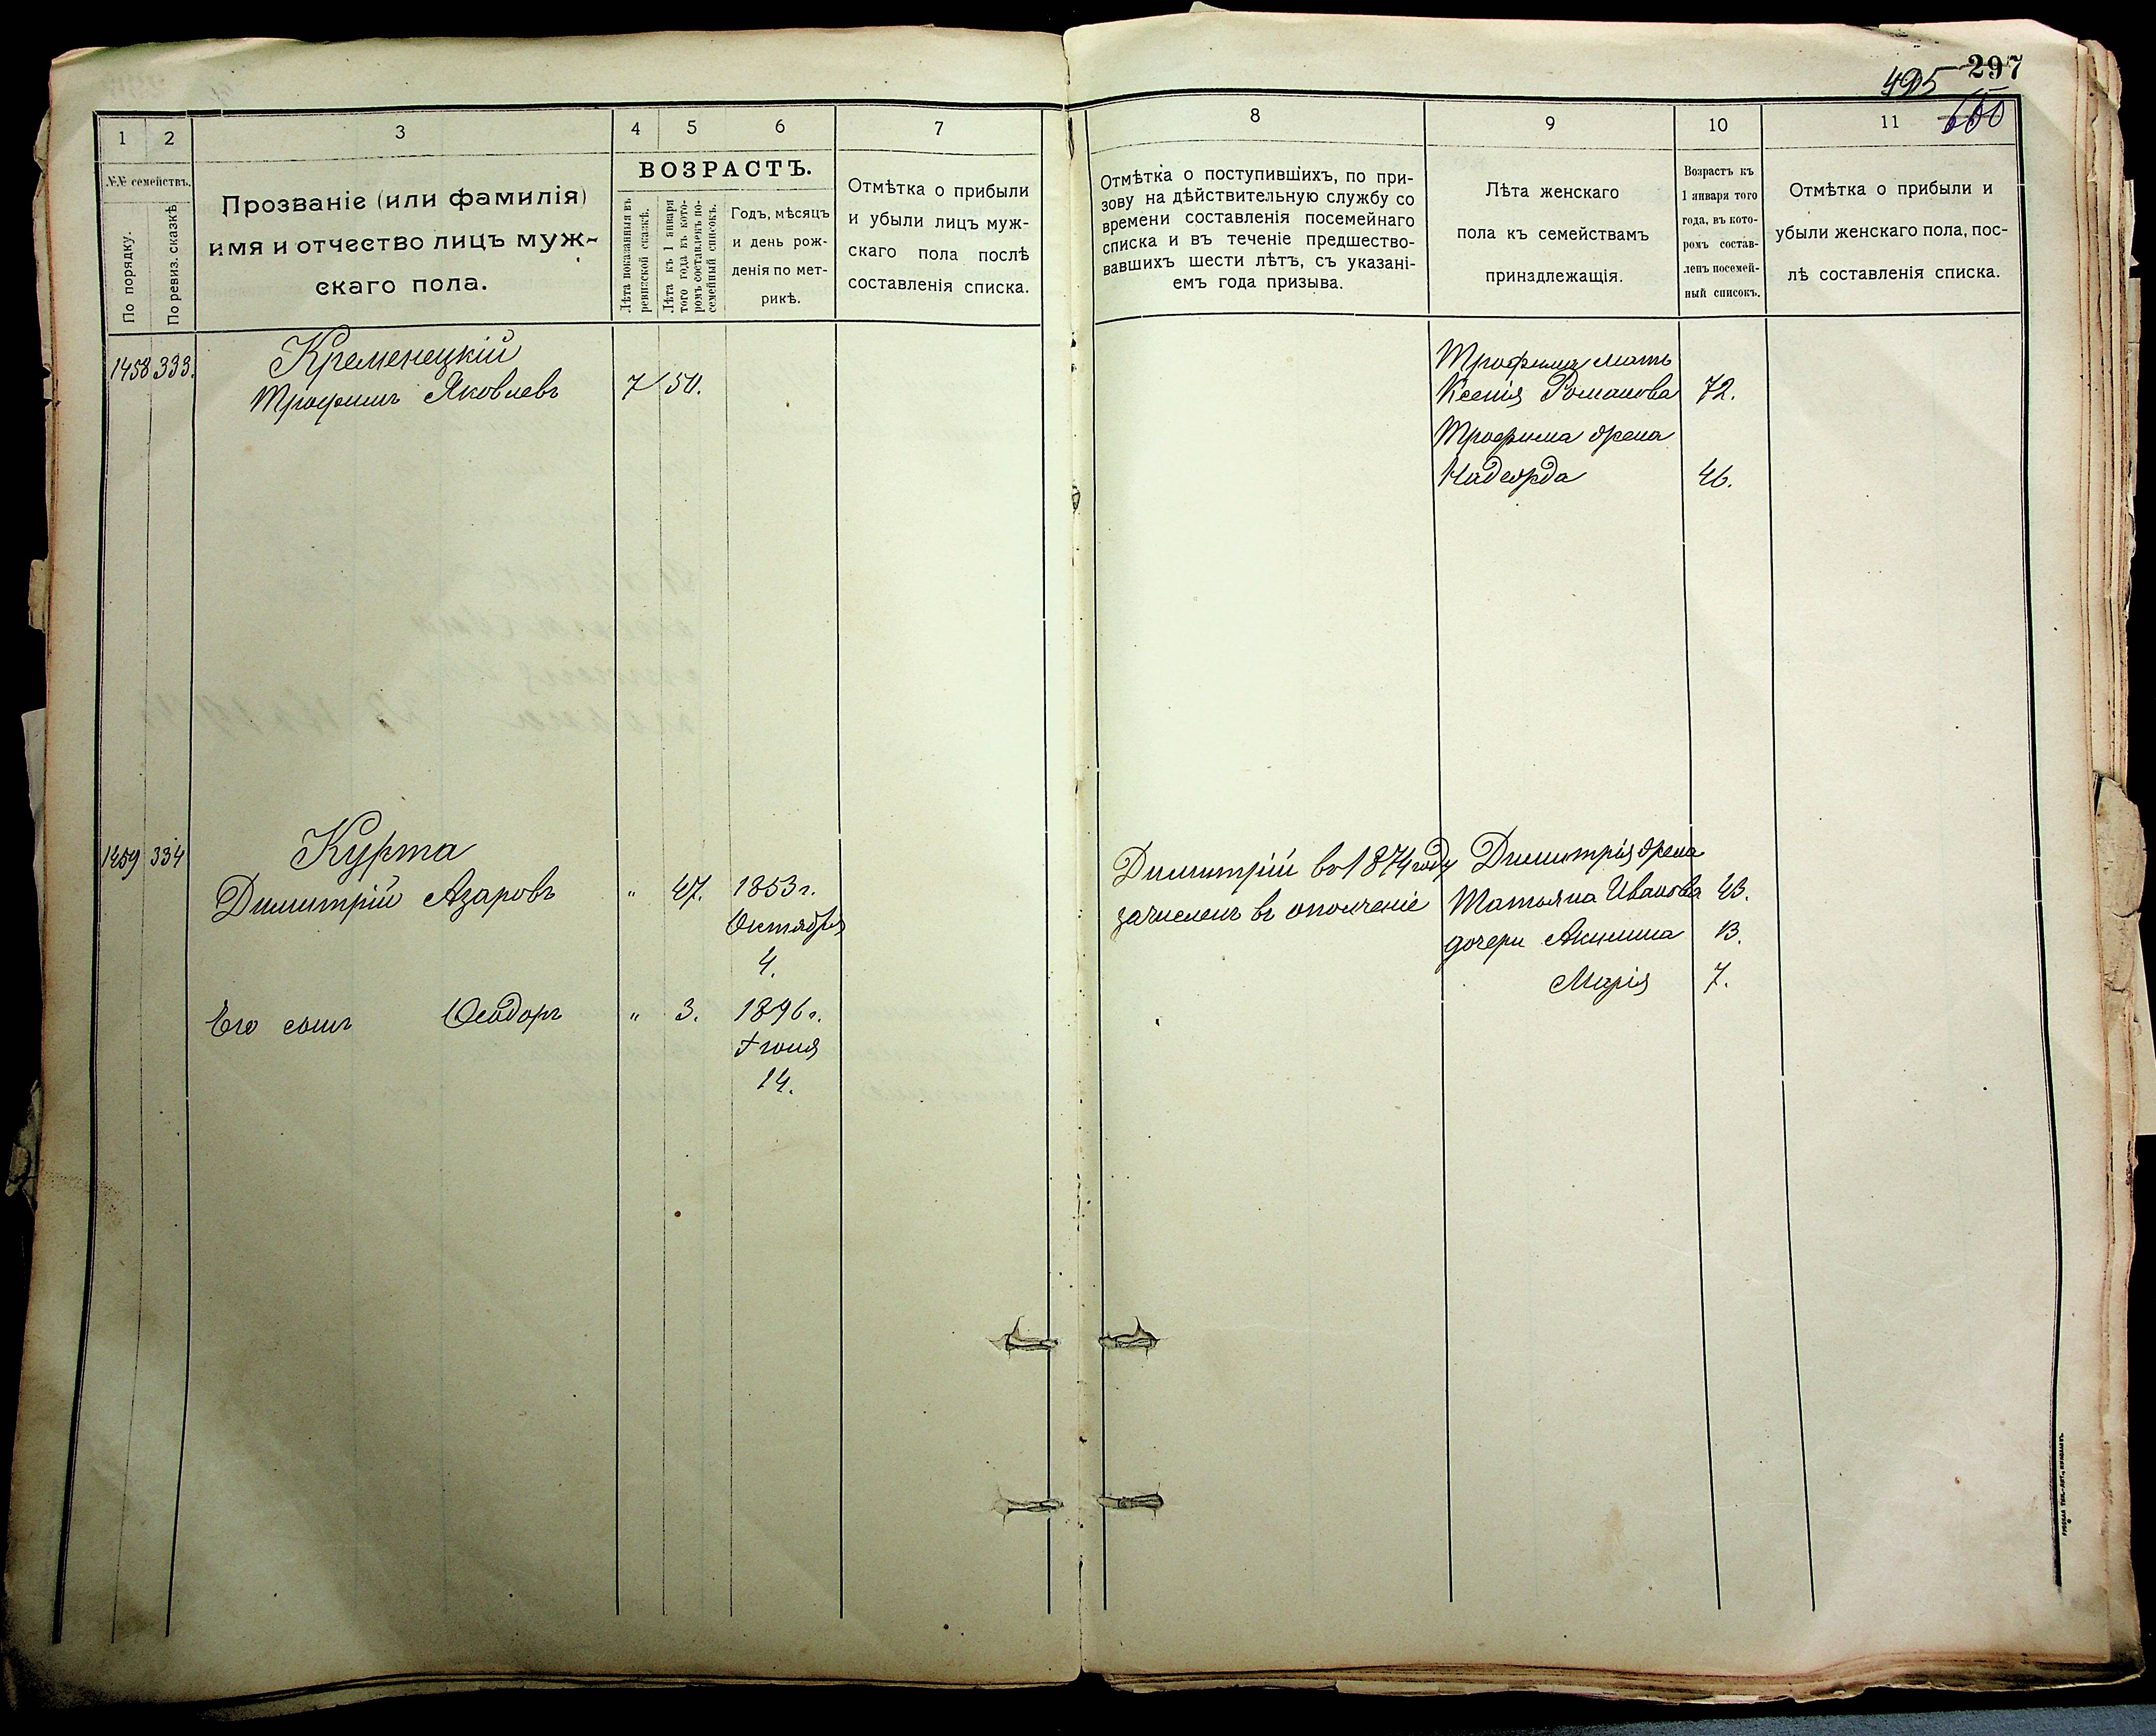 297
495
650
1
2
3
4
5
6
7
№№ семействъ.
По порядку.
По ревиз. сказкѣ
Прозваніе (или фамилія)
имя и отчество лицъ муж-
скаго пола.
ВОЗРАСТЪ.
Лѣта показанныя въ
ревизской сказкѣ.
Лѣта къ 1 января
того года къ кото-
ромъ составленъ по-
семейный списокъ.
Годъ, мѣсяцъ
и день рож-
денія по мет-
рикѣ.
Отмѣтка о прибыли
и убыли лицъ муж-
скаго пола послѣ
составленія списка.
1458 333.
Кременецкій
Трофимъ Яковлевъ 7 50.
1459 334
Курта
Димитрій Азаровъ " 47. 1853 г.
Октября
4.
Его сынъ Ѳеодоръ " 3. 1896 г.
Іюня
14.
8
9
10
11
Отмѣтка о поступившихъ, по при-
зову на дѣйствительную службу со
времени составленія посемейнаго
списка и въ теченіе предшество-
вавшихъ шести лѣтъ, съ указані-
емъ года призыва.
Лѣта женскаго
пола къ семействамъ
принадлежащія.
Возрастъ къ
1 января того
года, въ кото-
ромъ состав-
ленъ посемей-
ный списокъ.
Отмѣтка о прибыли и
убыли женскаго пола, пос-
лѣ составленія списка.
Трофима мать
Ксенія Романова 72.
Трофима жена
Надежда 46.
Димитрій въ 1874 году
зачисленъ въ ополченіе
Димитрія жена
Татьяна Иванова 43.
дочери Акилина 13.
Марія 7.